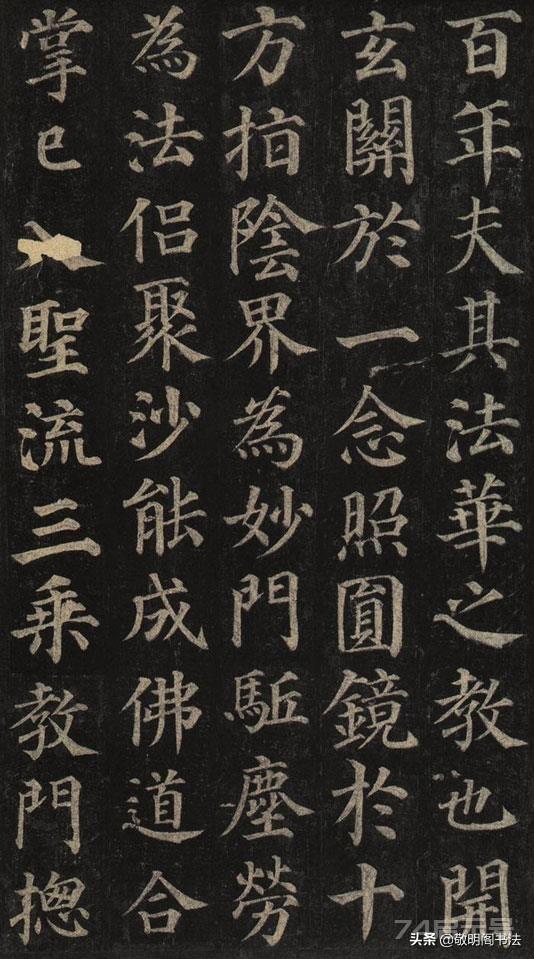 百年夫其法華之教也開
玄關於一念照圓鏡於十
方指陰界為妙門駈塵勞
為法侶聚沙能成佛道合
掌已入聖流三乗教門摠
头条 @敬明阁书法